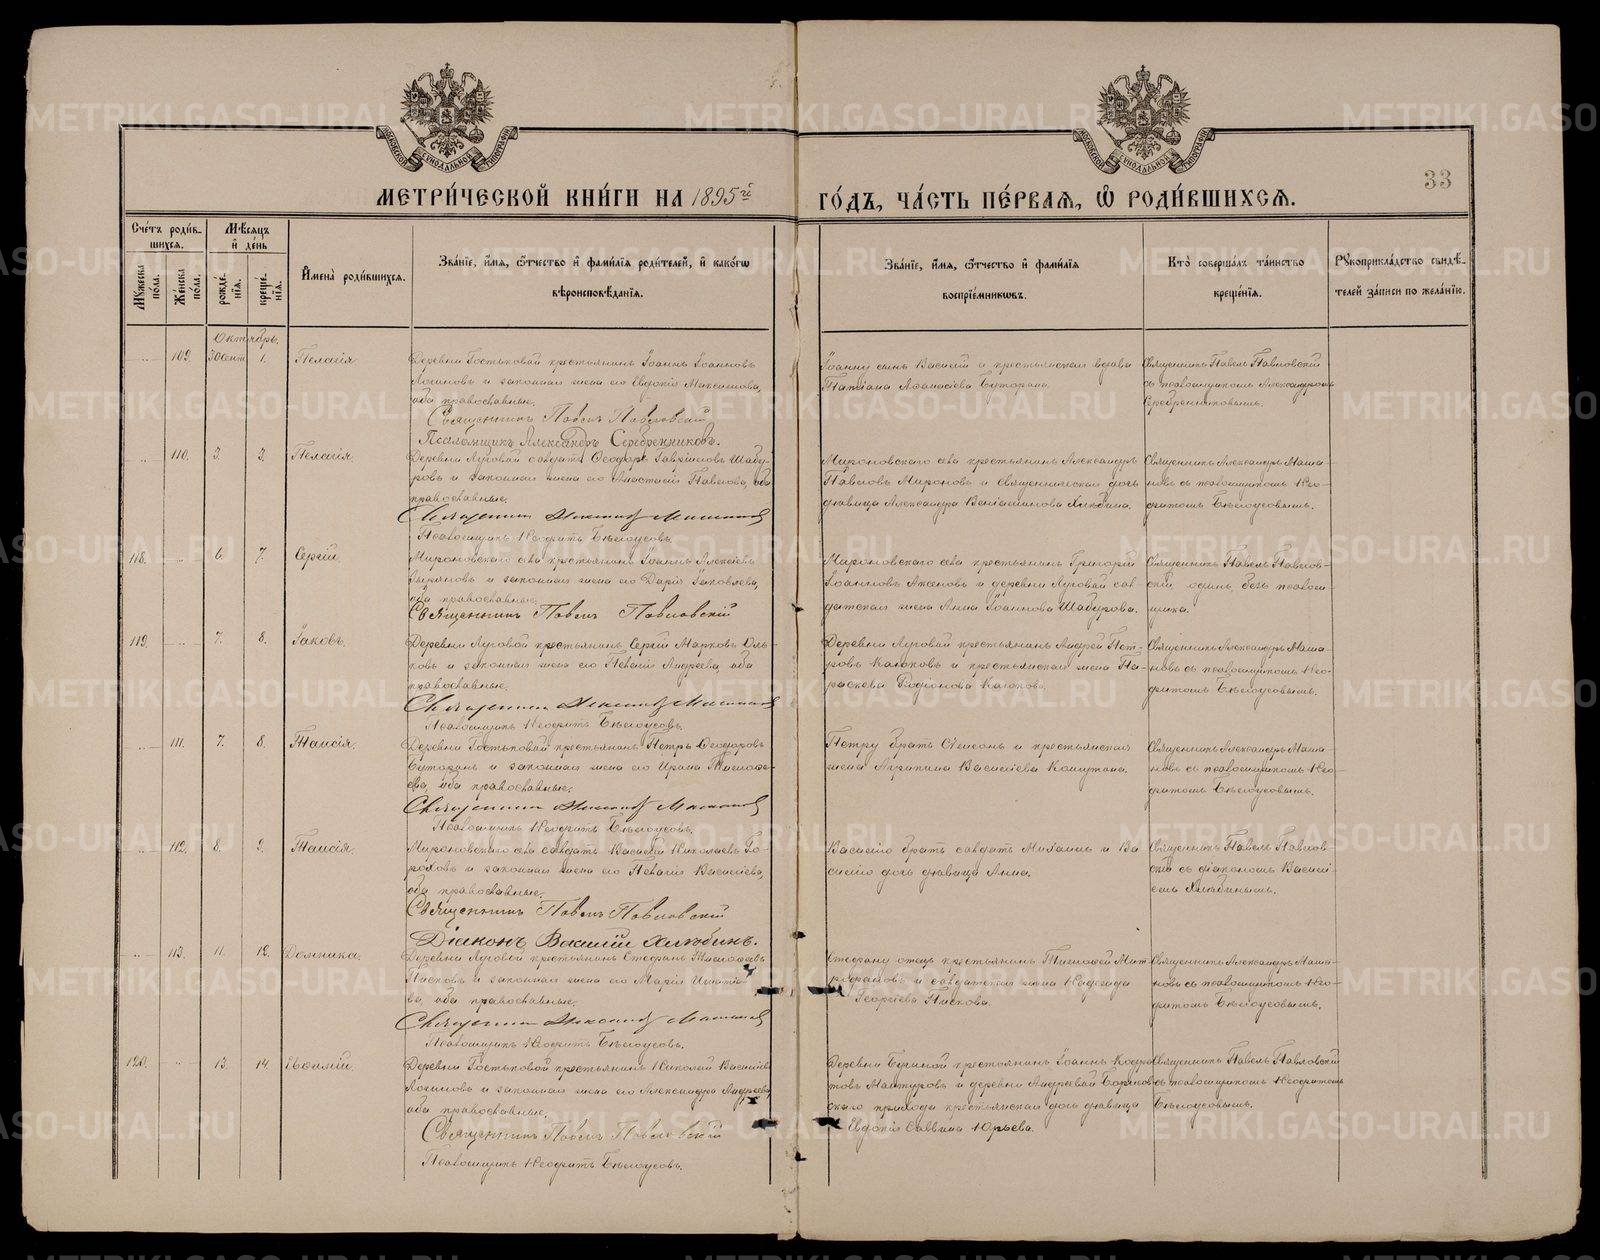 МЕТРИ́ЧЕСКОЙ КНИ́ГИ НА 1895й
ГО́ДЪ, ЧА́СТЬ ПЕ́РВАЯ, Ѡ РОДИ́ВШИХСЯ.
33
Сче́тъ роди́в-
шихся.
Мѣ́сяцъ
и де́нь
Му́жеска по́ла.
Же́нска по́ла.
рожде́нїя.
креще́нїя.
Имена̀ роди́вшихся.
Зва́нїе, и́мя, ѻ́тчество и фами́лїя роди́телей, и како́гѡ
вѣроисповѣ́данїя.
Зва́нїе, и́мя, ѻ́тчество и фами́лїя
воспрїе́мникѡвъ.
Кто̀ соверша́лъ та́инство
креще́нїя.
Рꙋкоприкла́дство свидѣ́-
телей за́писи по жела́нїю.
Октябрь.
109. 30 Сент. 1. Пелагія
Деревни Гостьковой крестьянинъ Іоаннъ Іоанновъ
Логиновъ и законная жена его Евдокія Максимова,
оба православные.
Священникъ Павелъ Павловскій
Псаломщикъ Александръ Серебренниковъ.
Іоанну сынъ Василій и крестьянская вдова
Татіана Аѳанасіева Буторина.
Священникъ Павелъ Павловскій
съ псаломщикомъ Александромъ
Серебренниковымъ.
110. 3. 3. Пелагія.
Деревни Луговой солдатъ Ѳеодоръ Гавріиловъ Шабу-
ровъ и законная жена его Анастасія Павлова, оба
православные.
Священникъ Александръ
Псаломщикъ Неофитъ Бѣлоусовъ.
Мироновскаго села крестьянинъ Александръ
Павловъ Мироновъ и священническая дочь
дѣвица Александра Веніаминова Хлѣбина.
Священникъ Александръ Маша-
новъ съ псаломщикомъ Нео-
фитомъ Бѣлоусовымъ.
118. 6. 7. Сергій.
Мироновскаго села крестьянинъ Іоаннъ Алексіевъ
и законная жена его Дарія Іаковлева,
оба православные.
Священникъ Павелъ Павловскій
Мироновскаго села крестьянинъ Григорій
Іоанновъ Аксеновъ и деревни Луговой сол-
датская жена Анна Іоаннова Шабурова.
Священникъ Павелъ Павлов-
скій одинъ, безъ псалом-
щика.
119. 7. 8. Іаковъ.
Деревни Луговой крестьянинъ Сергій Марковъ Оль-
ковъ и законная жена его Пелагія Андреева, оба
православные.
Священникъ Александръ
Псаломщикъ Неофитъ Бѣлоусовъ.
Деревни Луговой крестьянинъ Андрей Пет-
ровъ Калюковъ и крестьянская жена Па-
раскева Родіонова Калюкова.
Священникъ Александръ Маша-
новъ съ псаломщикомъ Нео-
фитомъ Бѣлоусовымъ.
111. 7. 8. Таисія.
Деревни Гостьковой крестьянинъ Петръ Ѳеодоровъ
Буторинъ и законная жена его Ирина Тимоѳе-
ева, оба православные.
Священникъ Александръ
Псаломщикъ Неофитъ Бѣлоусовъ.
Петру братъ Симеонъ и крестьянская
жена Агрипина Василіева
Священникъ Александръ Маша-
новъ съ псаломщикомъ Нео-
фитомъ Бѣлоусовымъ.
112. 8. 9. Таисія.
Мироновскаго села солдатъ Василій Николаевъ Го-
роховъ и законная жена его Пелагія Василіева,
оба православные.
Священникъ Павелъ Павловскій
Діаконъ Василій Хлѣбинъ.
Василію братъ солдатъ Михаилъ и Ва-
силію дочь дѣвица Анна.
Священникъ Павелъ Павлов-
скій съ діакономъ Василі-
емъ Хлѣбинымъ.
113. 11. 12. Домника.
Деревни Луговой крестьянинъ Стефанъ Тимоѳеевъ
Писковъ и законная жена его Марія Игнатіе-
ва, оба православные.
Священникъ Александръ
Псаломщикъ Неофитъ Бѣлоусовъ.
Стефану отецъ крестьянинъ Тимоѳей Мит-
рофановъ и солдатская жена Надежда
Георгіева Пискова.
Священникъ Александръ Маша-
новъ съ псаломщикомъ Нео-
фитомъ Бѣлоусовымъ.
120. 13. 14. Евѳимій.
Деревни Гостьковой крестьянинъ Николай Василіевъ
Логиновъ и законная жена его Александра Андреева,
оба православные.
Священникъ Павелъ Павловскій
Псаломщикъ Неофитъ Бѣлоусовъ.
Деревни крестьянинъ Іоаннъ Кодра-
товъ Мантуровъ и деревни Андреевой
скаго прихода крестьянская дочь дѣвица
Евдокія Саввина Юрьева.
Священникъ Павелъ Павловскій
съ псаломщикомъ Неофитомъ
Бѣлоусовымъ.
METRIKI.GASO-URAL.RU